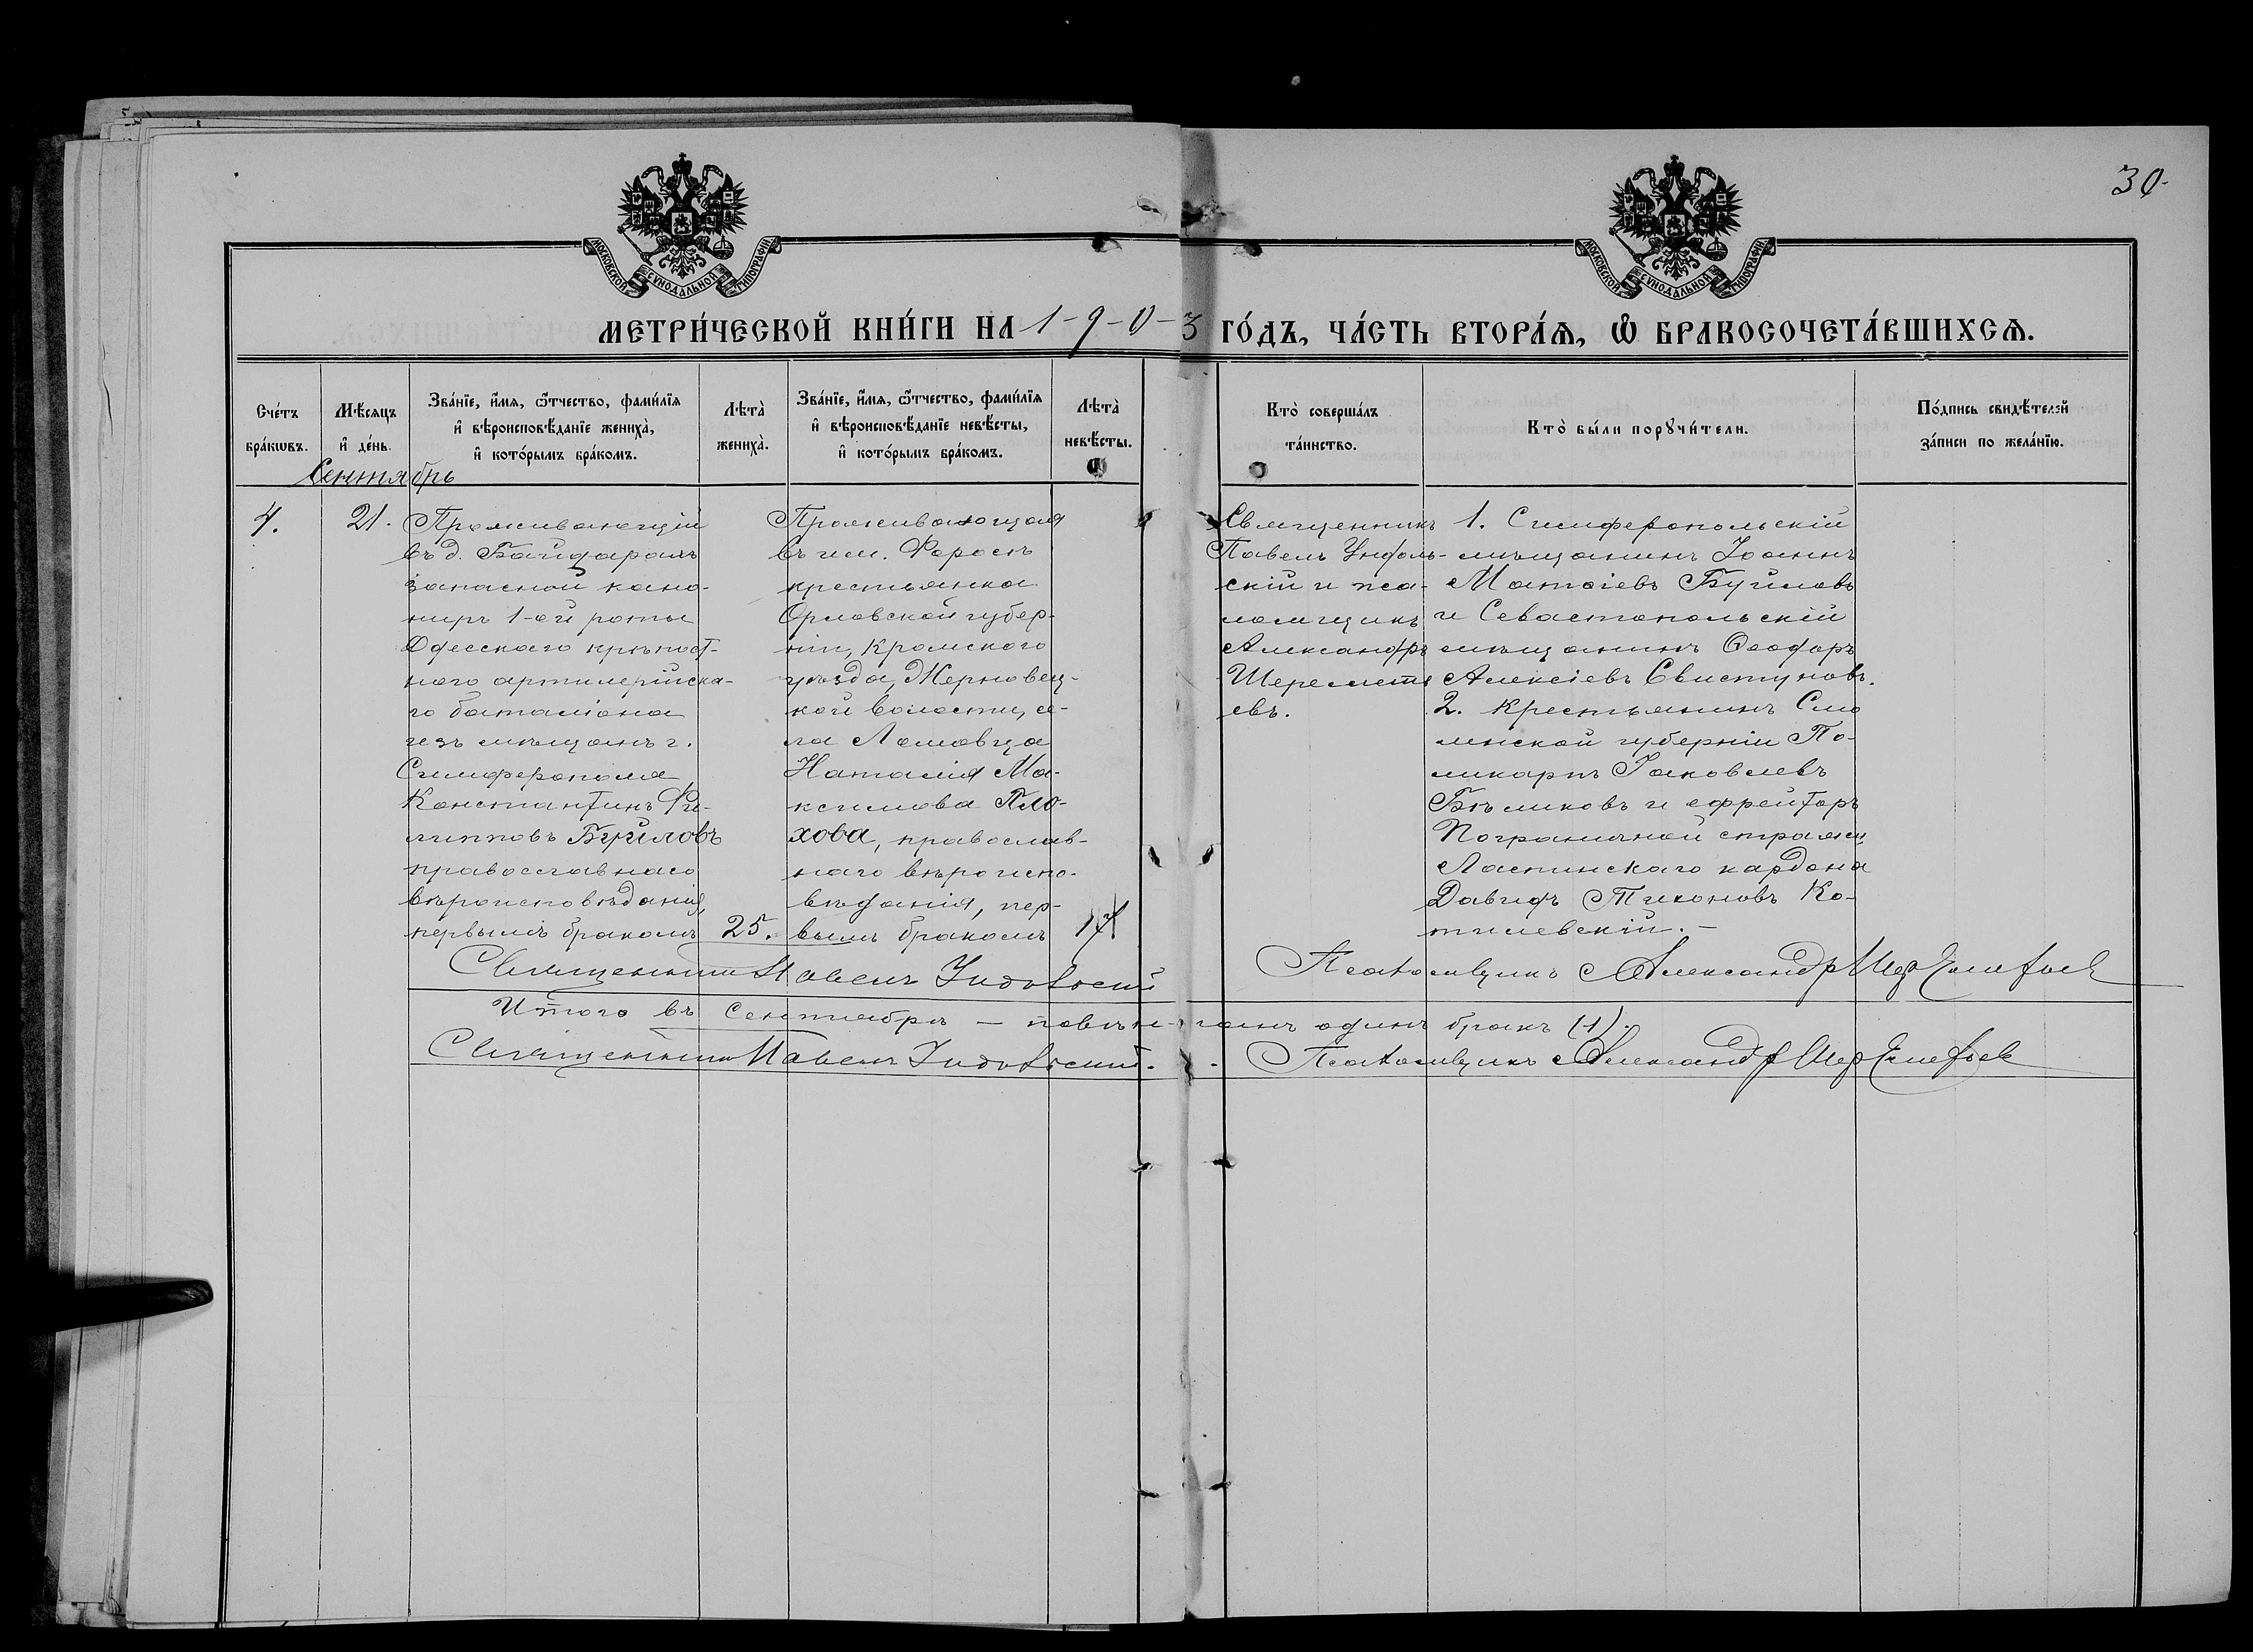 30
МОСКОВСКОЙ СУНОДАЛЬНОЙ ТИПОГРАФІИ
МОСКОВСКОЙ СУНОДАЛЬНОЙ ТИПОГРАФІИ
МЕТРИ́ЧЕСКОЙ КНИ́ГИ НА 1-9-0-3 ГО́ДЪ, ЧА́СТЬ ВТОРА́Ѧ, Ѽ БРАКОСОЧЕТА́ВШИХСѦ.
Сче́тъ
бра́кѡвъ.
Мѣ́сяцъ
и҆ де́нь.
Зва́нїе, и҆́мя, ѻ҆́тчество, фами́лїя
и҆ вѣроисповѣ́данїе жениха̀,
и҆ кото́рымъ бра́комъ.
Лѣта̀
жениха̀.
Зва́нїе, и҆́мя, ѻ҆́тчество, фами́лїя
и҆ вѣроисповѣ́данїе невѣ́сты,
и҆ кото́рымъ бра́комъ.
Лѣта̀
невѣ́сты.
Кто̀ соверша́лъ
та́инство.
Кто̀ бы́ли порꙋчи́тели.
По́дпись свидѣ́телей
за́писи по жела́нїю.
Сентябрь
21.
Проживающій
въ д. Байдарахъ
запасной кано-
ниръ 1-ой роты
Одесскаго крѣпост-
ного артилерійска-
го баталіона
изъ мѣщанъ г.
Симферополя
Константинъ Фи-
липповъ Буйловъ
православнаго
вѣроисповѣданія,
первымъ бракомъ
25.
Проживающая
въ им. Форосъ
крестьянка
Орловской губер-
ніи, Кромского
уѣзда, Жерновец-
кой волости, се-
ла Ломовца
Наталія Ма-
ксимова Пло-
хова, православ-
наго вѣроиспо-
вѣданія, пер-
вымъ бракомъ
17
Священникъ
Павелъ Ундоль-
скій и пса-
ломщикъ
Александръ
Шереметь
евъ.
1. Симферопольскій
мѣщанинъ Іоаннъ
Матѳіевъ Буйловъ
и Севастопольскій
мѣщанинъ Ѳеодоръ
Алексіевъ Свистуновъ.
2. Крестьянинъ Смо
ленской губерніи По-
ликарпъ Іаковлевъ
Бѣликовъ и ефрейторъ
Пограничной стражи
Ласпинскаго кардона
Давидъ Тихоновъ Ко-
тилевскій. —
Священникъ Павелъ Ундольскій
Псаломщикъ Александръ Шереметьев
Итого въ Сентябрѣ — повѣнчанъ одинъ бракъ (1).
Священникъ Павелъ Ундольскій.
Псаломщикъ Александръ Шереметьев